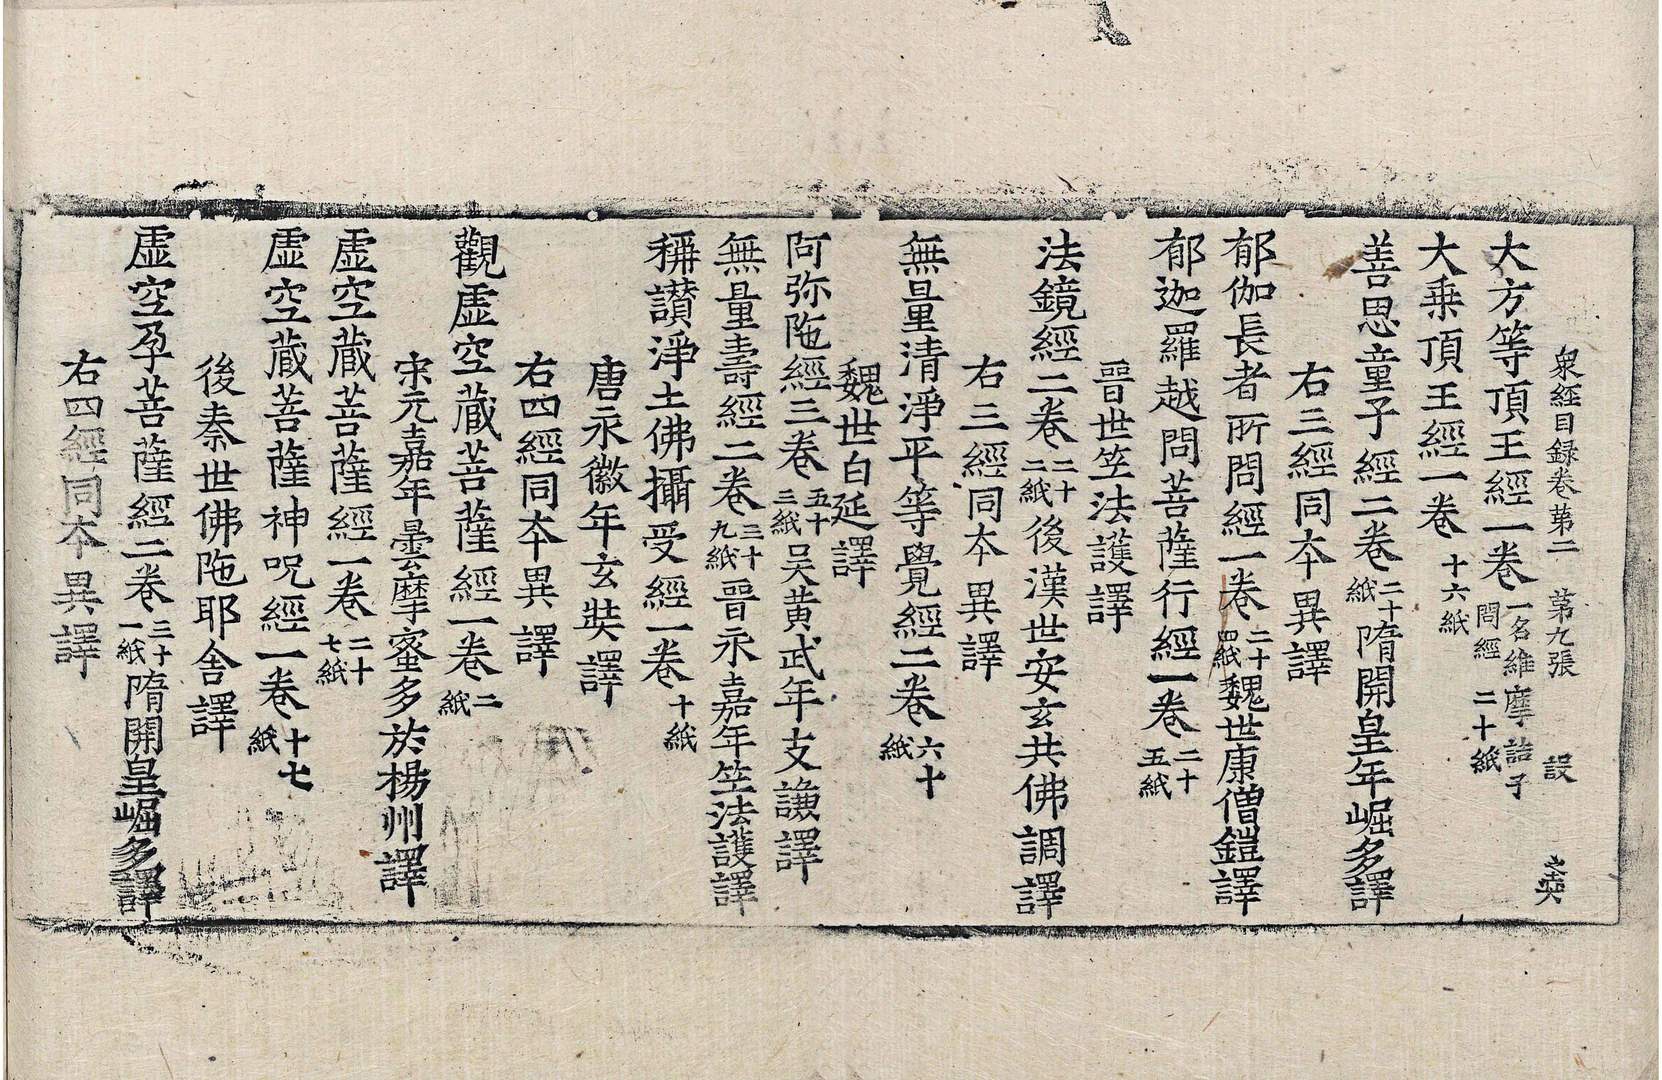 衆経目録卷第二 第九張 設
大方等頂王經一卷 一名維摩詰子問經 二十紙
大乗頂王經一卷 十六紙
善思童子經二卷 二十紙 隋開皇年崛多譯
右三經同本異譯
郁伽長者所問經一卷 二十四紙 魏世康僧鎧譯
郁迦羅越問菩薩行經一卷 二十五紙
晉世竺法護譯
法鏡經二卷 二十二紙 後漢世安玄共佛調譯
右三經同本異譯
無量清淨平等覺經二卷 六十紙
魏世白延譯
阿弥陁經三卷 五十三紙 吴黄武年支謙譯
無量壽經二卷 三十九紙 晉永嘉年竺法護譯
稱讃淨土佛攝受經一卷 十紙
唐永徽年玄奘譯
右四經同本異譯
觀虚空藏菩薩經一卷 二紙
宋元嘉年曇摩蜜多於楊州譯
虚空藏菩薩經一卷 二十七紙
虚空藏菩薩神呪經一卷 十七紙
後秦世佛陁耶舎譯
虚空孕菩薩經二卷 三十一紙 隋開皇崛多譯
右四經同本異譯